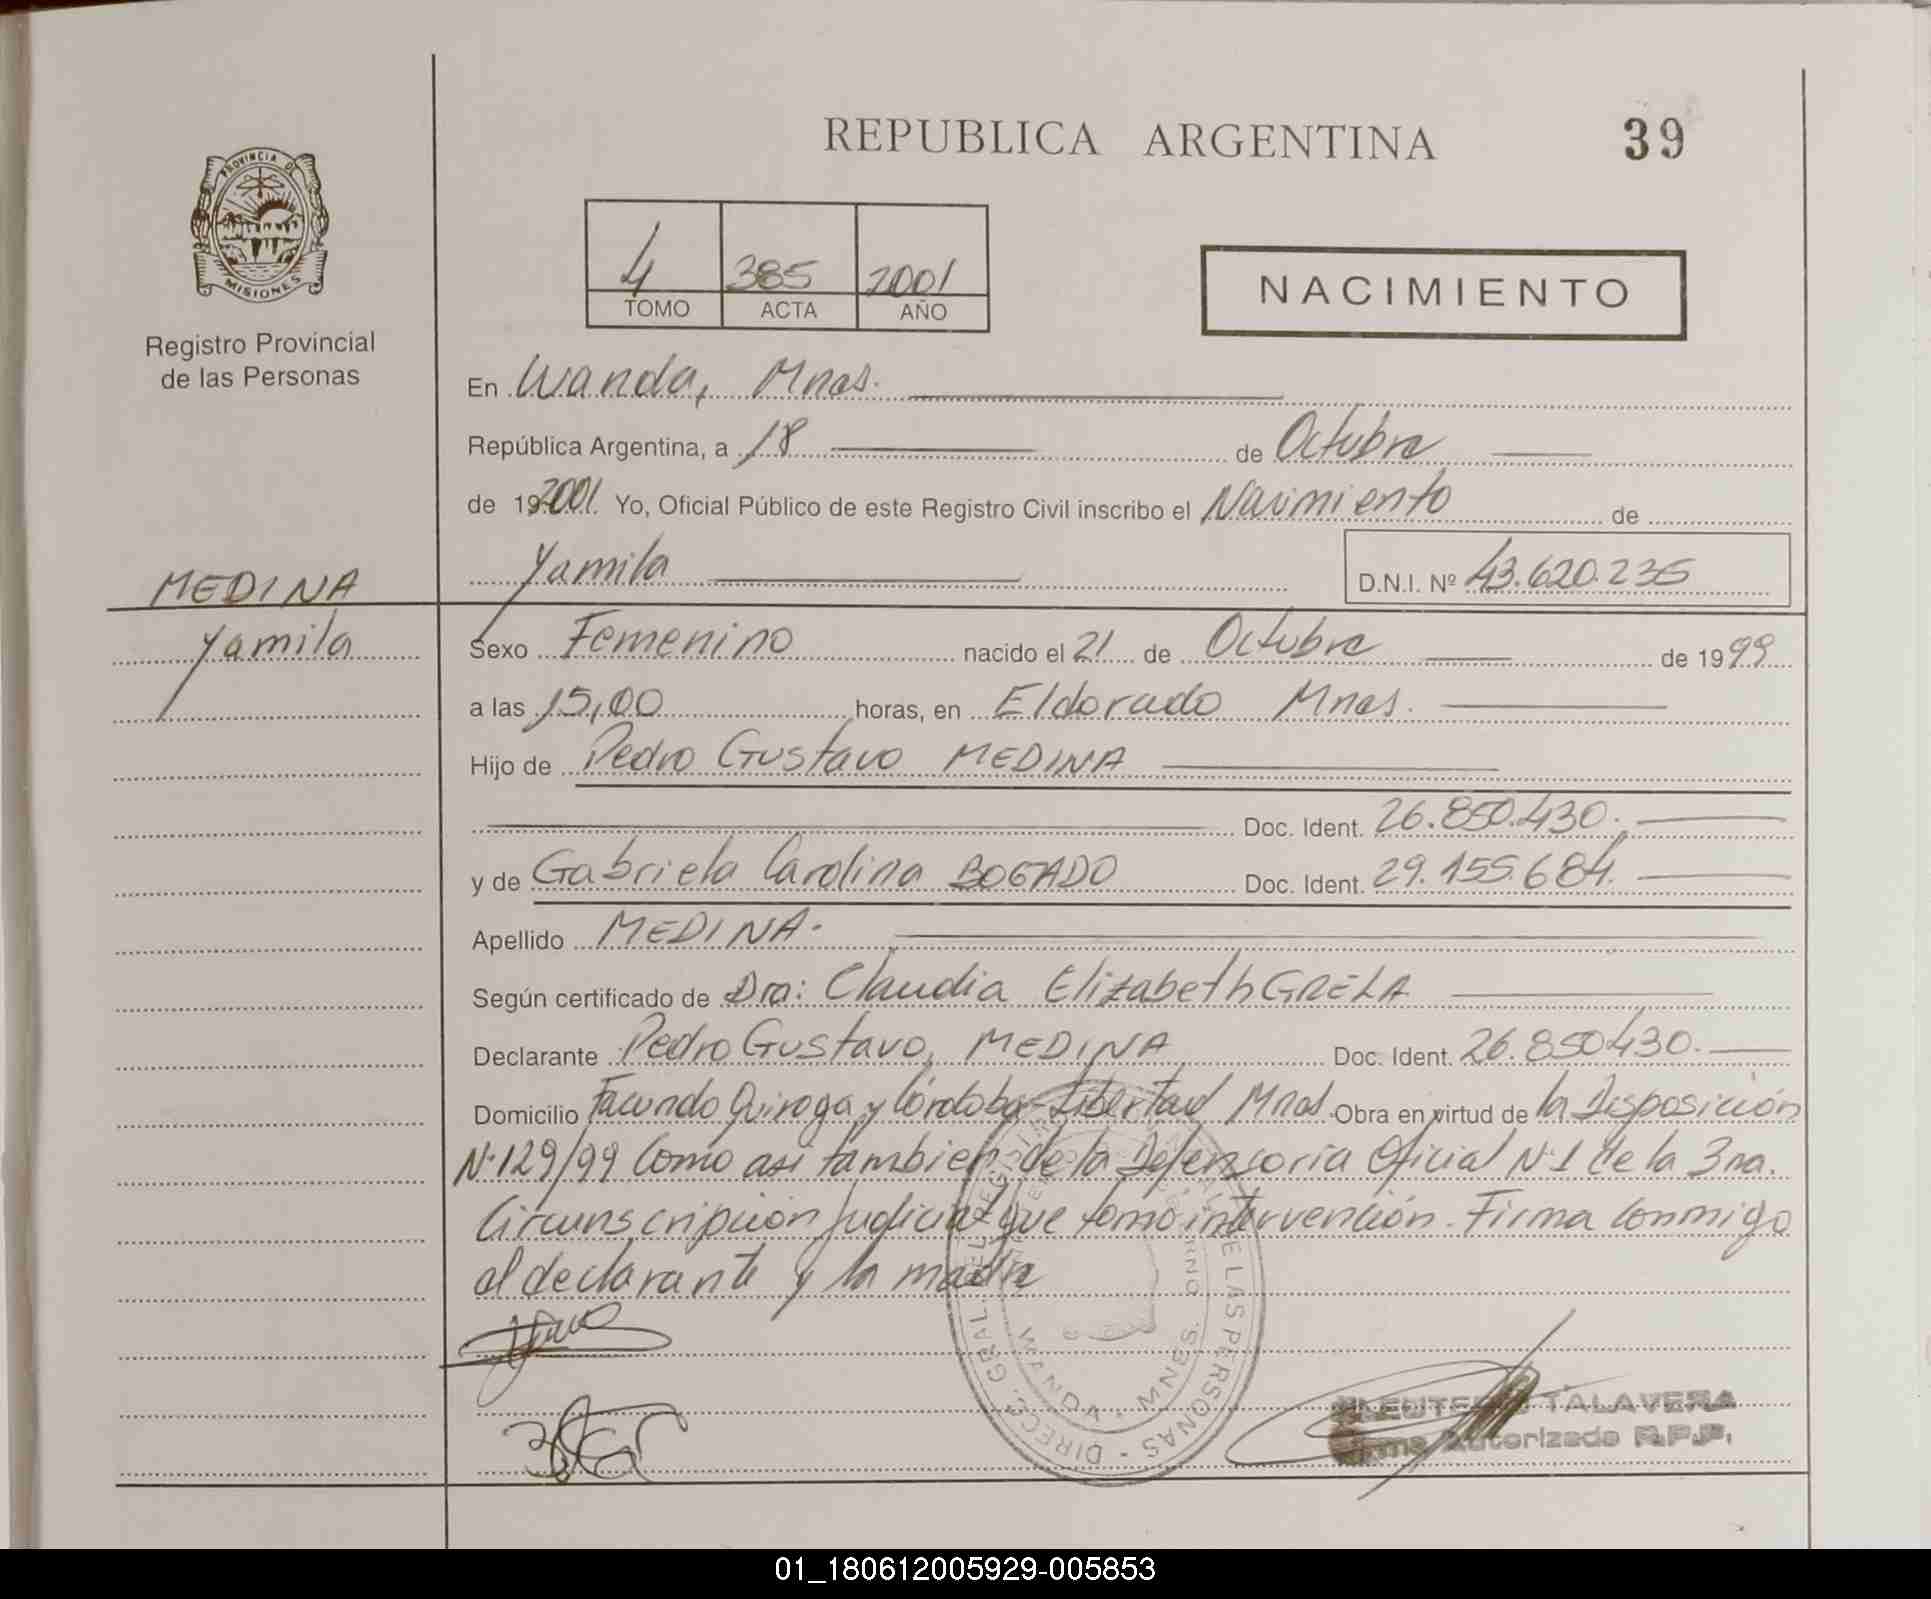 REPUBLICA ARGENTINA
39
PROVINCIA DE
MISIONES
Registro Provincial
de las Personas
4 385 2001
TOMO ACTA AÑO
NACIMIENTO
En Wanda, Mnes.
República Argentina, a 18 de Octubre
de 192001. Yo, Oficial Público de este Registro Civil inscribo el Nacimiento de
Yamila D.N.I. Nº 43.620.236
MEDINA
Yamila
Sexo Femenino nacido el 21 de Octubre de 1999
a las 15,00 horas, en Eldorado Mnes.
Hijo de Pedro Gustavo MEDINA
Doc. Ident. 26.850.430.
y de Gabriela Carolina BOGADO Doc. Ident. 29.155.684.
Apellido MEDINA.
Según certificado de Dra: Claudia Elizabeth GRELA
Declarante Pedro Gustavo, MEDINA Doc. Ident. 26.850430.
Domicilio Facundo Quiroga y Córdoba-Libertad Mnes. Obra en virtud de la Disposición
Nº129/99 Como asi tambien de la Defensoria Oficial Nº1 de la 3ra.
Circunscripción Judicial que tomo intervención. Firma conmigo
el declarante y la madre
DIRECC. GRAL. DEL REGISTRO DE LAS PERSONAS
WANDA - MNES.
ELEUTERIO TALAVERA
Firma Autorizada R.P.P.
01_180612005929-005853